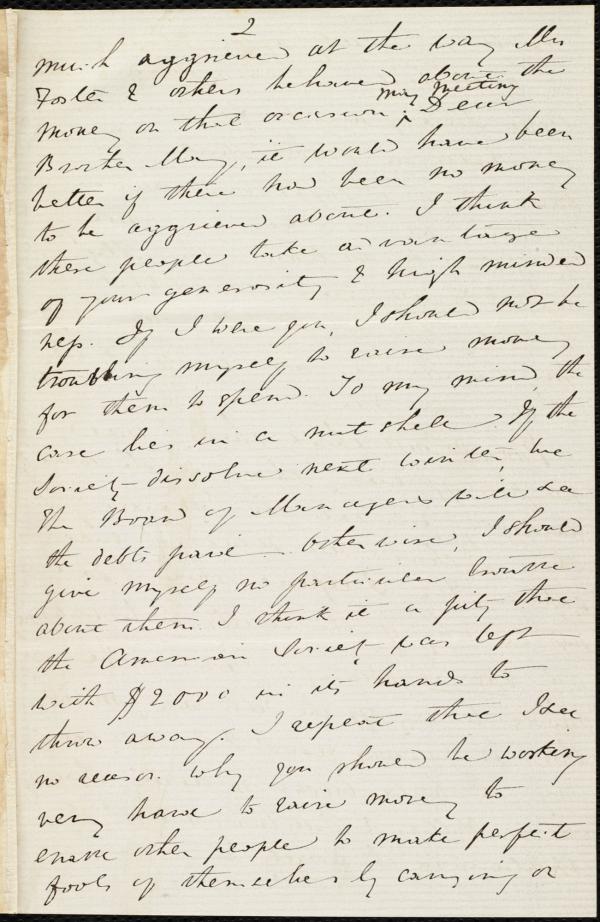 2
much aggrieved at the way Mrs
Foster & others behaved about the
money on that occasion, ^ May meeting Dear
Brother May, it would have been
better if there had been no money
to be aggrieved about. I think
these people take advantage
of your generosity & high minded
ness. If I were you, I should not be
troubling myself to raise money
for them to spend. To my mind, the
case lies in a nutshell. If the
Society dissolve next winter, we
the Board of Managers will see
the debts paid. Otherwise, I should
give myself no particular trouble
about them. I think it a pity that
the American Society was left
with $2000 in its hands to
throw away. I repeat that I see
no reason why you should be working
very hard to raise money to
enable other people to make perfect
fools of themselves by carrying on